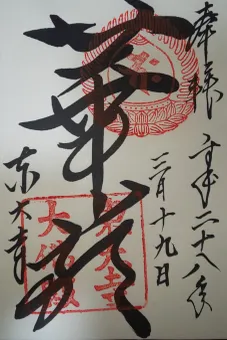 奉拝 平成二十八年
三月十九日
華厳
東大寺
東大寺
大仏殿